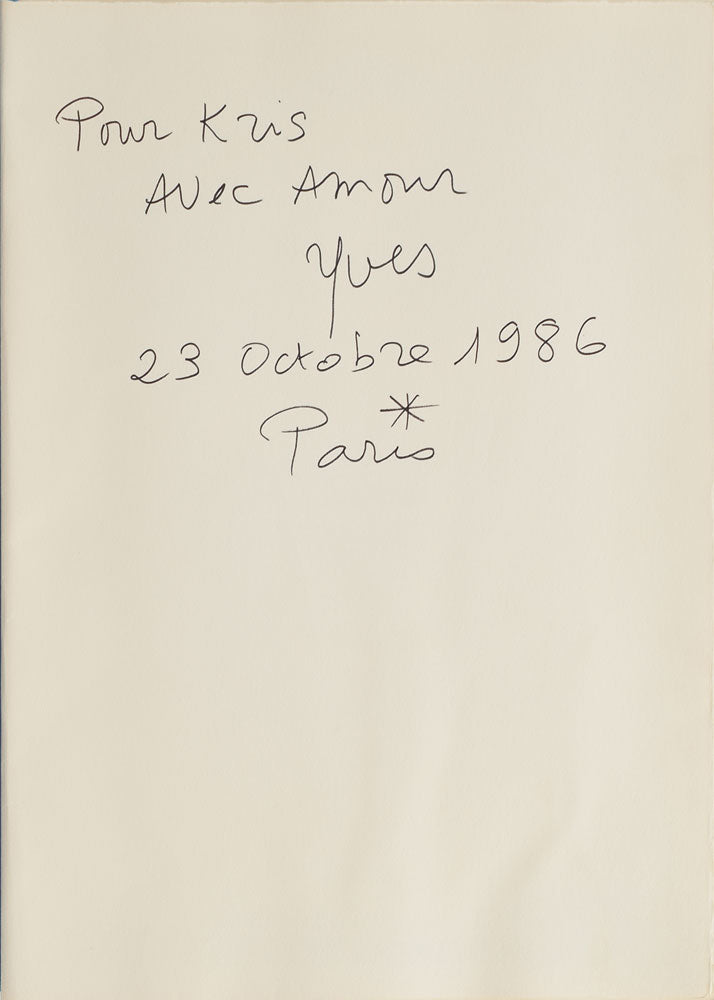 Pour Kris
Avec Amour
Yves
23 Octobre 1986
*
Paris